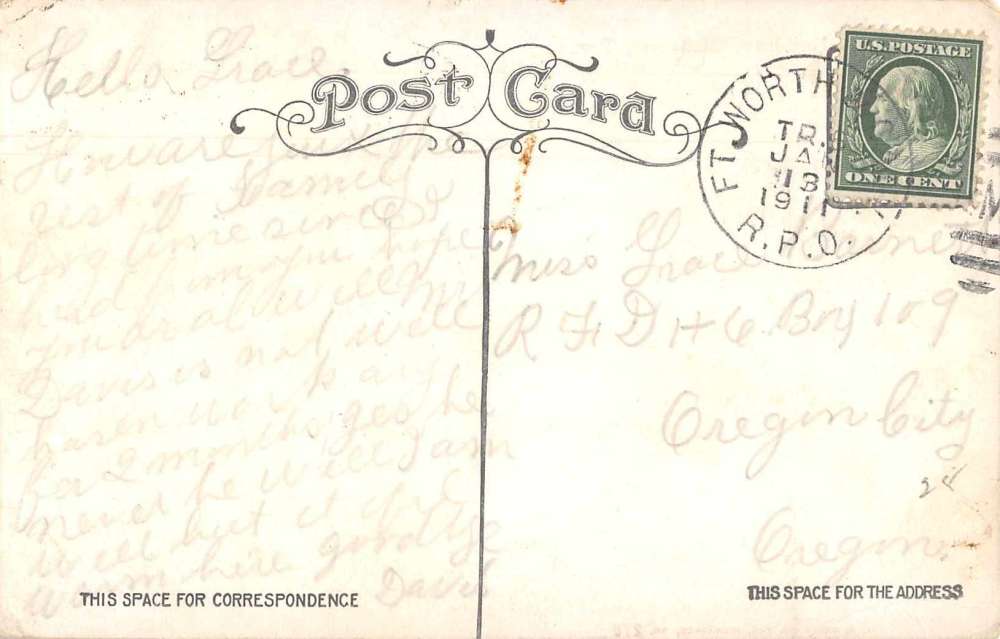 Post Card
U.S. POSTAGE
ONE CENT
FT. WORTH
TR.
JAN
13
1911
R.P.O.
Hello Grace
How are you & the
rest of
long time since I
had from you hope
your all well Mr
Davis is not well
hasent work any
for 2 months ges he
never he will I am
well but it
warm here good bye
Davis
Miss Grace
R F D # 6 Box 109
Oregon City
Oregon
28
THIS SPACE FOR CORRESPONDENCE
THIS SPACE FOR THE ADDRESS